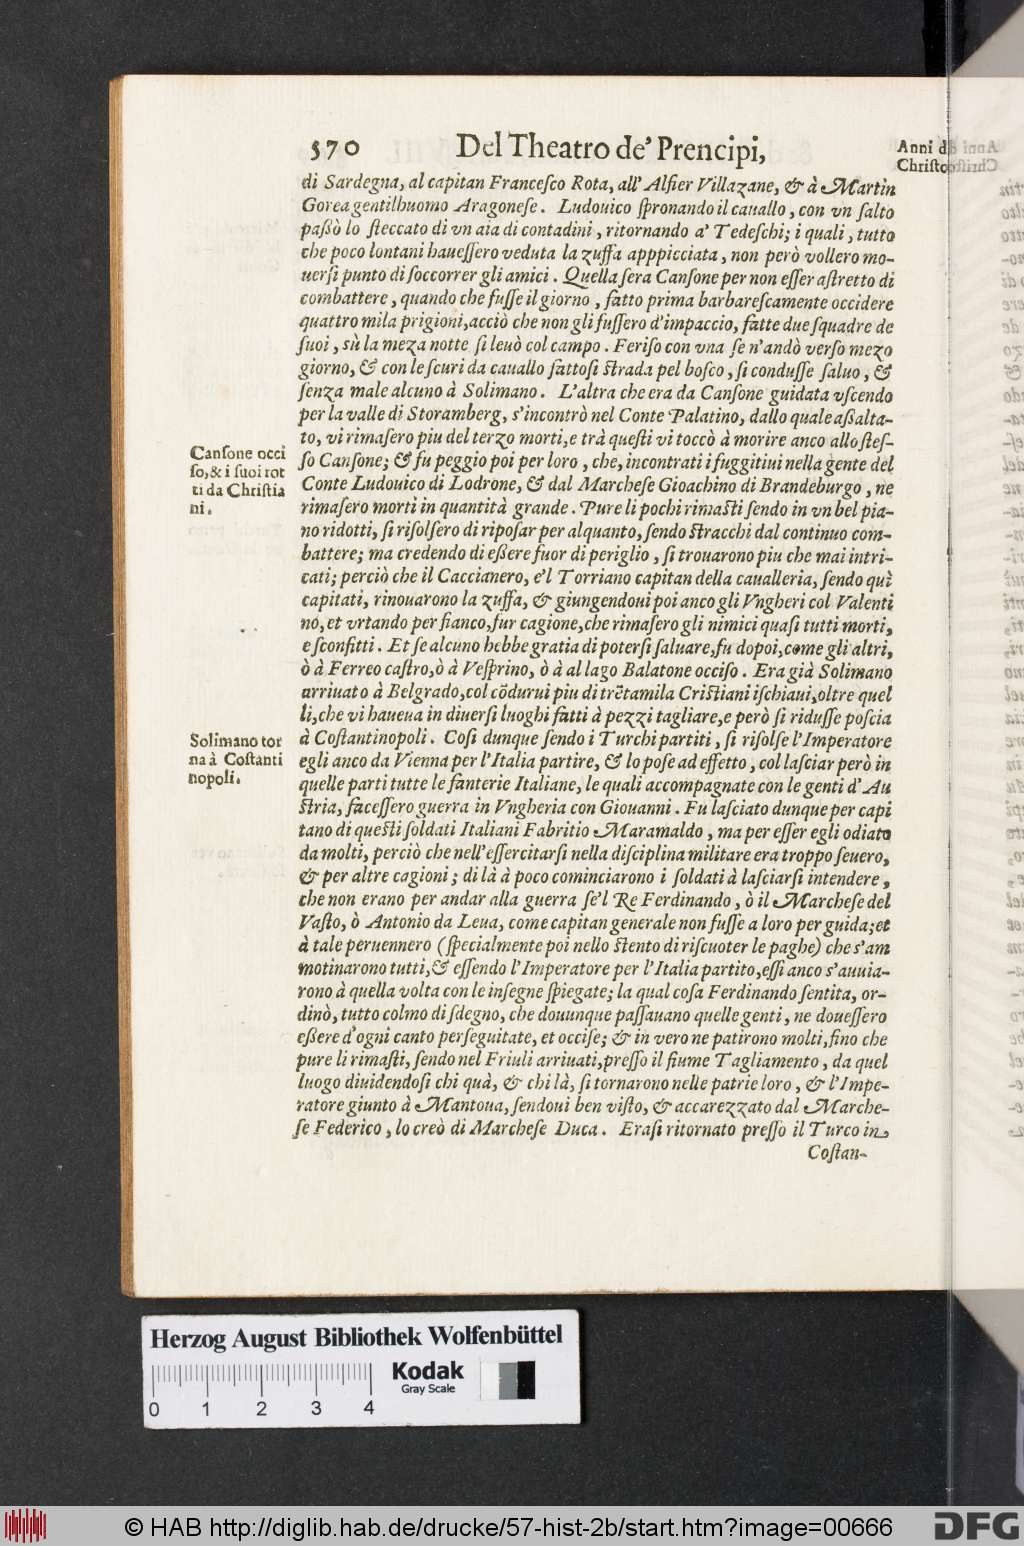 570 Del Theatro de' Prencipi,
Anni di
Christo
di Sardegna, al capitan Francesco Rota, all' Alfier Villazane, & à Martin
Gorea gentilhuomo Aragonese. Ludouico spronando il cauallo, con vn salto
passò lo steccato di vn aia di contadini, ritornando a' Tedeschi; i quali, tutto
che poco lontani hauessero veduta la zuffa apppicciata, non però vollero mo-
uersi punto di soccorrer gli amici. Quella sera Cansone per non esser astretto di
combattere, quando che fusse il giorno, fatto prima barbarescamente occidere
quattro mila prigioni,acciò che non gli fussero d'impaccio, fatte due squadre de
suoi, sù la meza notte si leuò col campo. Feriso con vna se n'andò verso mezo
giorno, & con le scuri da cauallo fattosi strada pel bosco, si condusse saluo, &
senza male alcuno à Solimano. L'altra che era da Cansone guidata vscendo
per la valle di Storamberg, s'incontrò nel Conte Palatino, dallo quale assalta-
to, vi rimasero piu del terzo morti,e trà questi vi toccò à morire anco allo stes-
so Cansone; & fu peggio poi per loro, che, incontrati i fuggitiui nella gente del
Conte Ludouico di Lodrone, & dal Marchese Gioachino di Brandeburgo, ne
rimasero morti in quantità grande. Pure li pochi rimasti sendo in vn bel pia-
no ridotti, si risolsero di riposar per alquanto, sendo stracchi dal continuo com-
battere; ma credendo di essere fuor di periglio, si trouarono piu che mai intri-
cati; perciò che il Caccianero, e'l Torriano capitan della caualleria, sendo quì
capitati, rinouarono la zuffa, & giungendoui poi anco gli Vngheri col Valenti
no,et vrtando per fianco,fur cagione,che rimasero gli nimici quasi tutti morti,
e sconfitti. Et se alcuno hebbe gratia di potersi saluare,fu dopoi,come gli altri,
ò à Ferreo castro,ò à Vesprino, ò à al lago Balatone occiso. Era già Solimano
arriuato à Belgrado,col cōdurui piu di trētamila Cristiani ischiaui,oltre quel
li,che vi haueua in diuersi luoghi fatti à pezzi tagliare,e però si ridusse poscia
à Costantinopoli. Cosi dunque sendo i Turchi partiti, si risolse l'Imperatore
egli anco da Vienna per l'Italia partire, & lo pose ad effetto, col lasciar però in
quelle parti tutte le fanterie Italiane, le quali accompagnate con le genti d' Au
stria, facessero guerra in Vngheria con Giouanni. Fu lasciato dunque per capi
tano di questi soldati Italiani Fabritio Maramaldo, ma per esser egli odiato
da molti, perciò che nell'essercitarsi nella disciplina militare era troppo seuero,
& per altre cagioni; di là à poco cominciarono i soldati à lasciarsi intendere,
che non erano per andar alla guerra se'l Re Ferdinando, ò il Marchese del
Vasto, ò Antonio da Leua, come capitan generale non fusse a loro per guida;et
à tale peruennero (specialmente poi nello stento di riscuoter le paghe) che s'am
motinarono tutti,& essendo l'Imperatore per l'Italia partito,essi anco s'auuia-
rono à quella volta con le insegne spiegate; la qual cosa Ferdinando sentita, or-
dinò, tutto colmo di sdegno, che douunque passauano quelle genti, ne douessero
essere d'ogni canto perseguitate, et occise; & in vero ne patirono molti,fino che
pure li rimasti, sendo nel Friuli arriuati,presso il fiume Tagliamento, da quel
luogo diuidendosi chi quà, & chi là, si tornarono nelle patrie loro, & l'Impe-
ratore giunto à Mantoua, sendoui ben visto, & accarezzato dal Marche-
se Federico, lo creò di Marchese Duca. Erasi ritornato presso il Turco in
Costan-
Cansone occi
so,& i suoi rot
ti da Christia
ni.
Solimano tor
na à Costanti
nopoli.
Herzog August Bibliothek Wolfenbüttel
0 1 2 3 4
Kodak
Gray Scale
© HAB http://diglib.hab.de/drucke/57-hist-2b/start.htm?image=00666
DFG